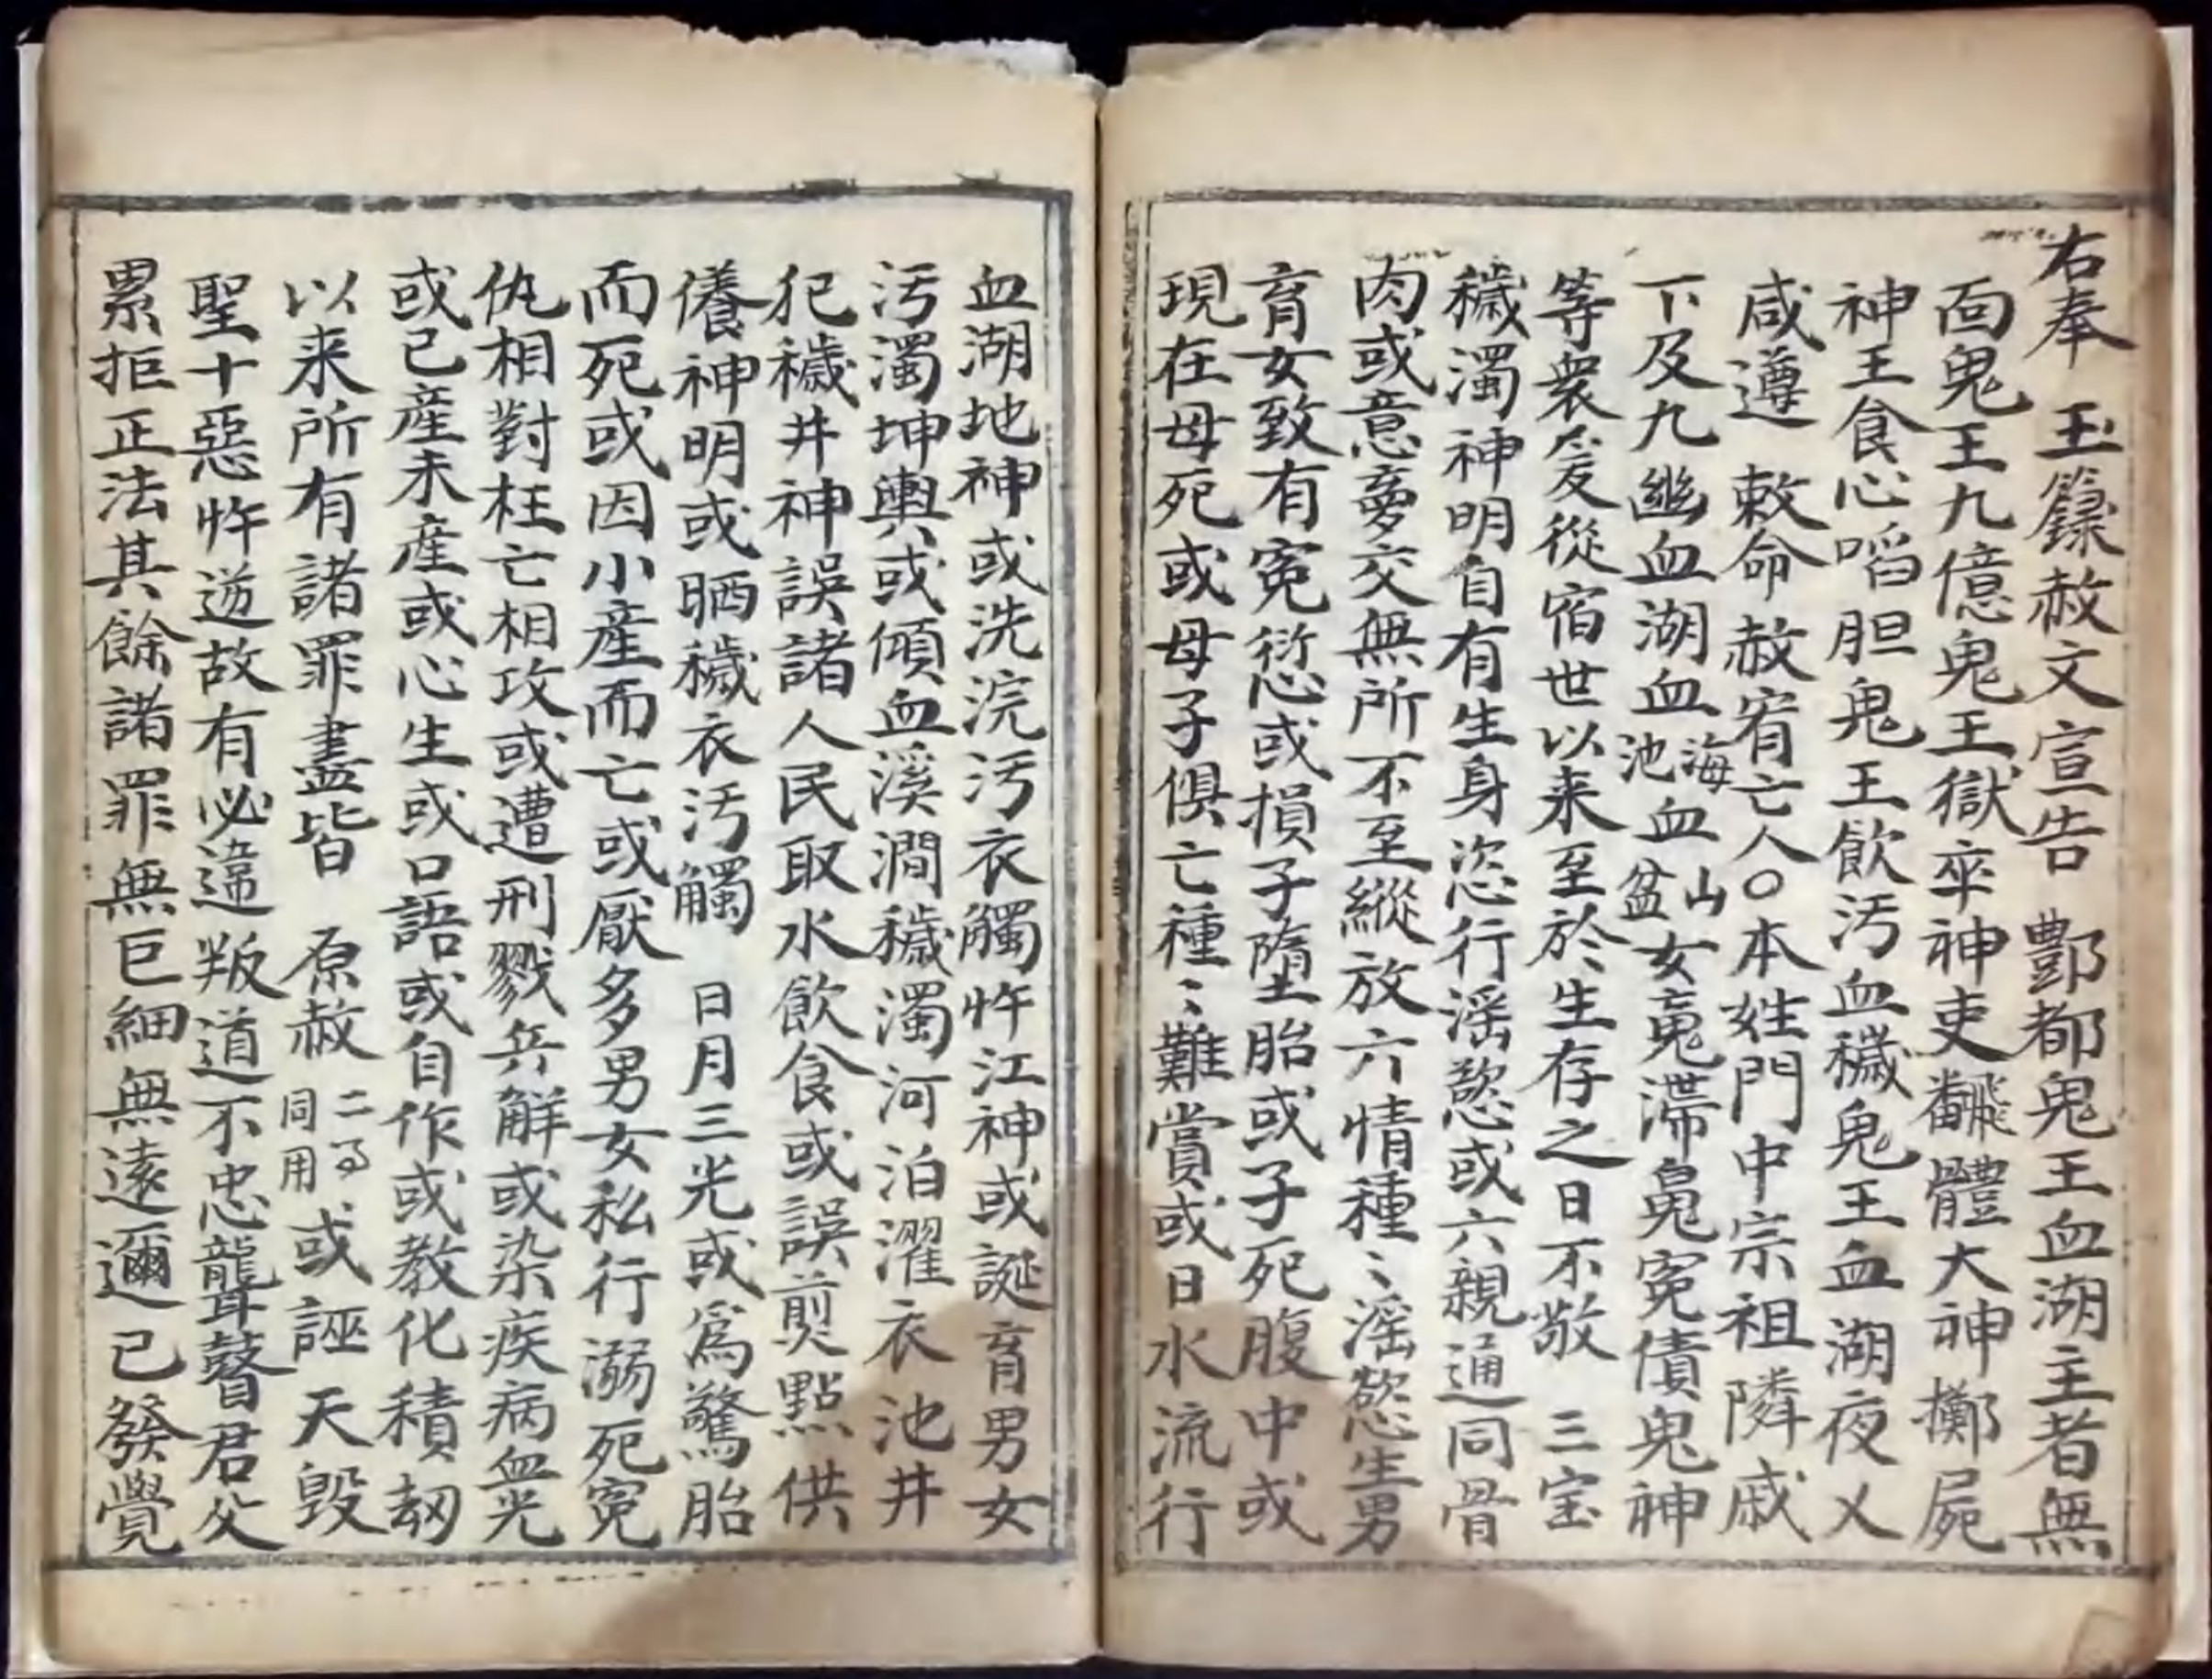 右奉 玉籙赦文宣告 酆都鬼王血湖主者無
面鬼王九億鬼王獄卒神吏飜體大神擲屍
神王食心啗胆鬼王飲汚血穢鬼王血湖夜乂
咸遵 敕命赦宥亡人〇本姓門中宗祖隣戚
下及九幽血湖血海池血山盆女魂滯魄冤債鬼神
等衆爰從宿世以来至於生存之日不敬 三宝
穢濁神明自有生身恣行滛慾或六親通同骨
肉或意夢交無所不至縱放六情種〻滛慾生男
育女致有冤愆或損子墮胎或子死腹中或
現在母死或母子俱亡種〻難賞或日水流行
血湖地神或洗浣汚衣觸忤江神或誕育男女
汚濁坤輿或傾血溪澗穢濁河泊濯衣池井
犯穢井神誤諸人民取水飲食或誤煎點供
儀神明或晒穢衣汚觸 日月三光或爲驚胎
而死或因小産而亡或厭多男女私行溺死冤
仇相對枉亡相攻或遭刑戮兵解或染疾病血光
或已産未産或心生或口語或自作或教化積刼
以来所有諸罪盡皆 原赦二同用或誣 天毀
聖十惡忤逆故有必違叛道不忠聾瞽君父
累拒正法其餘諸罪無巨細無遠邇已發覺